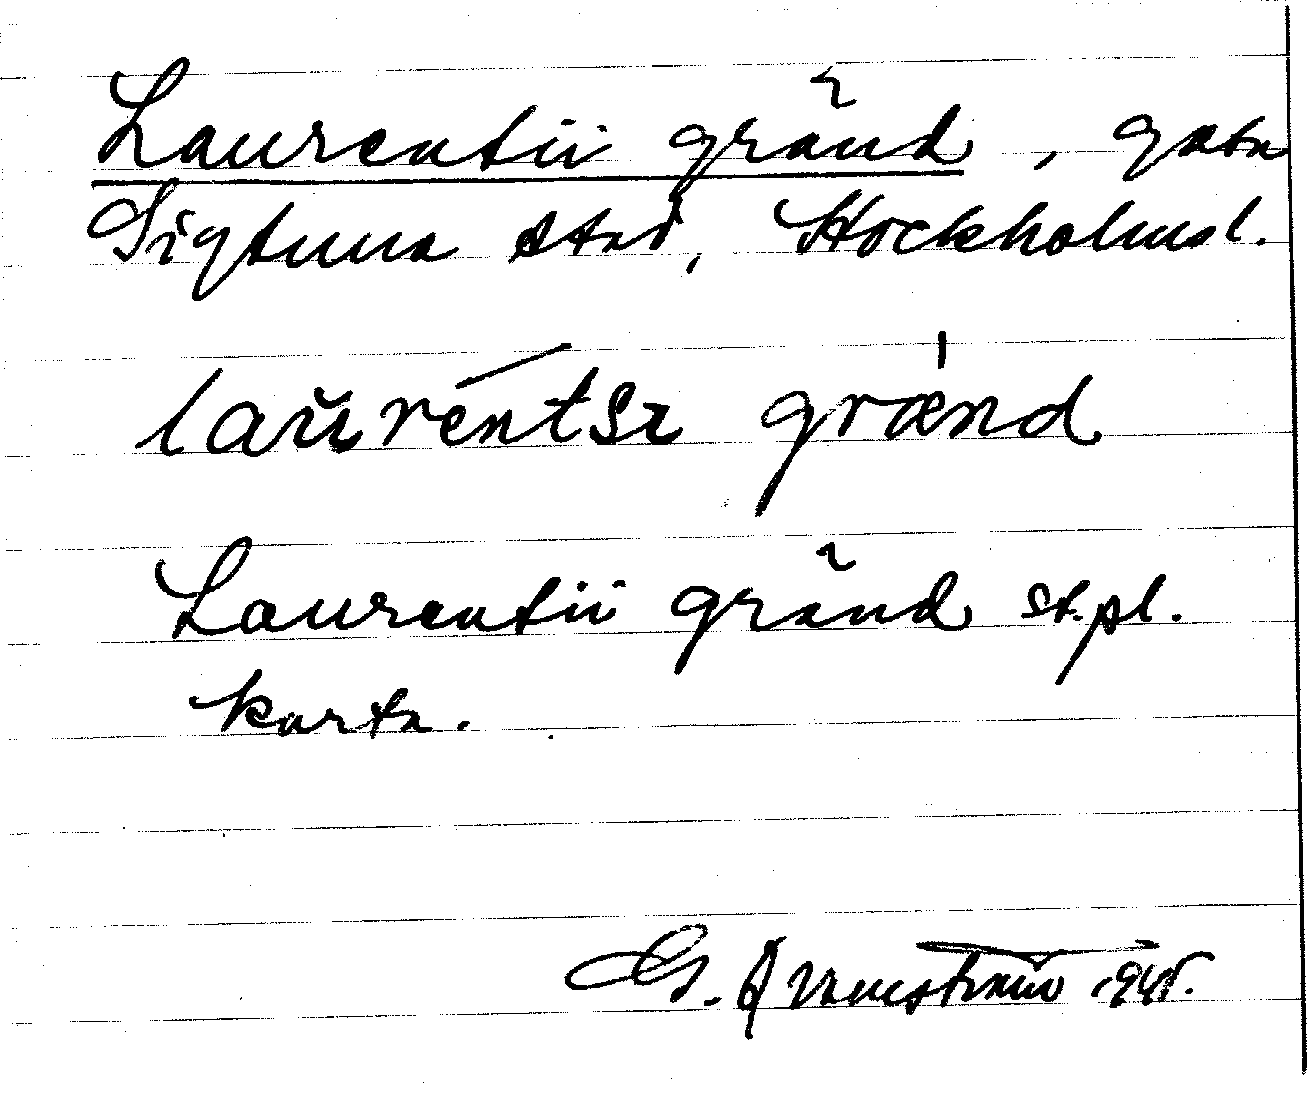 Laurentii gränd, gata
Sigtuna stad, Stockholmsl.
laurentsı grænd
Laurentii gränd st.pl.
karta.
G.